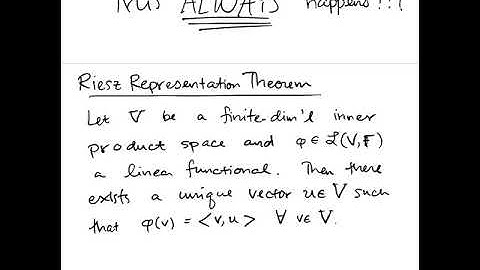 ALWAYS happens!!?
Riesz Representation Theorem
Let V be a finite-dim'l inner
product space and φ ∈ L(V,F)
a linear functional. Then there
exists a unique vector u∈V such
that φ(v) = <v,u> ∀ v∈V.